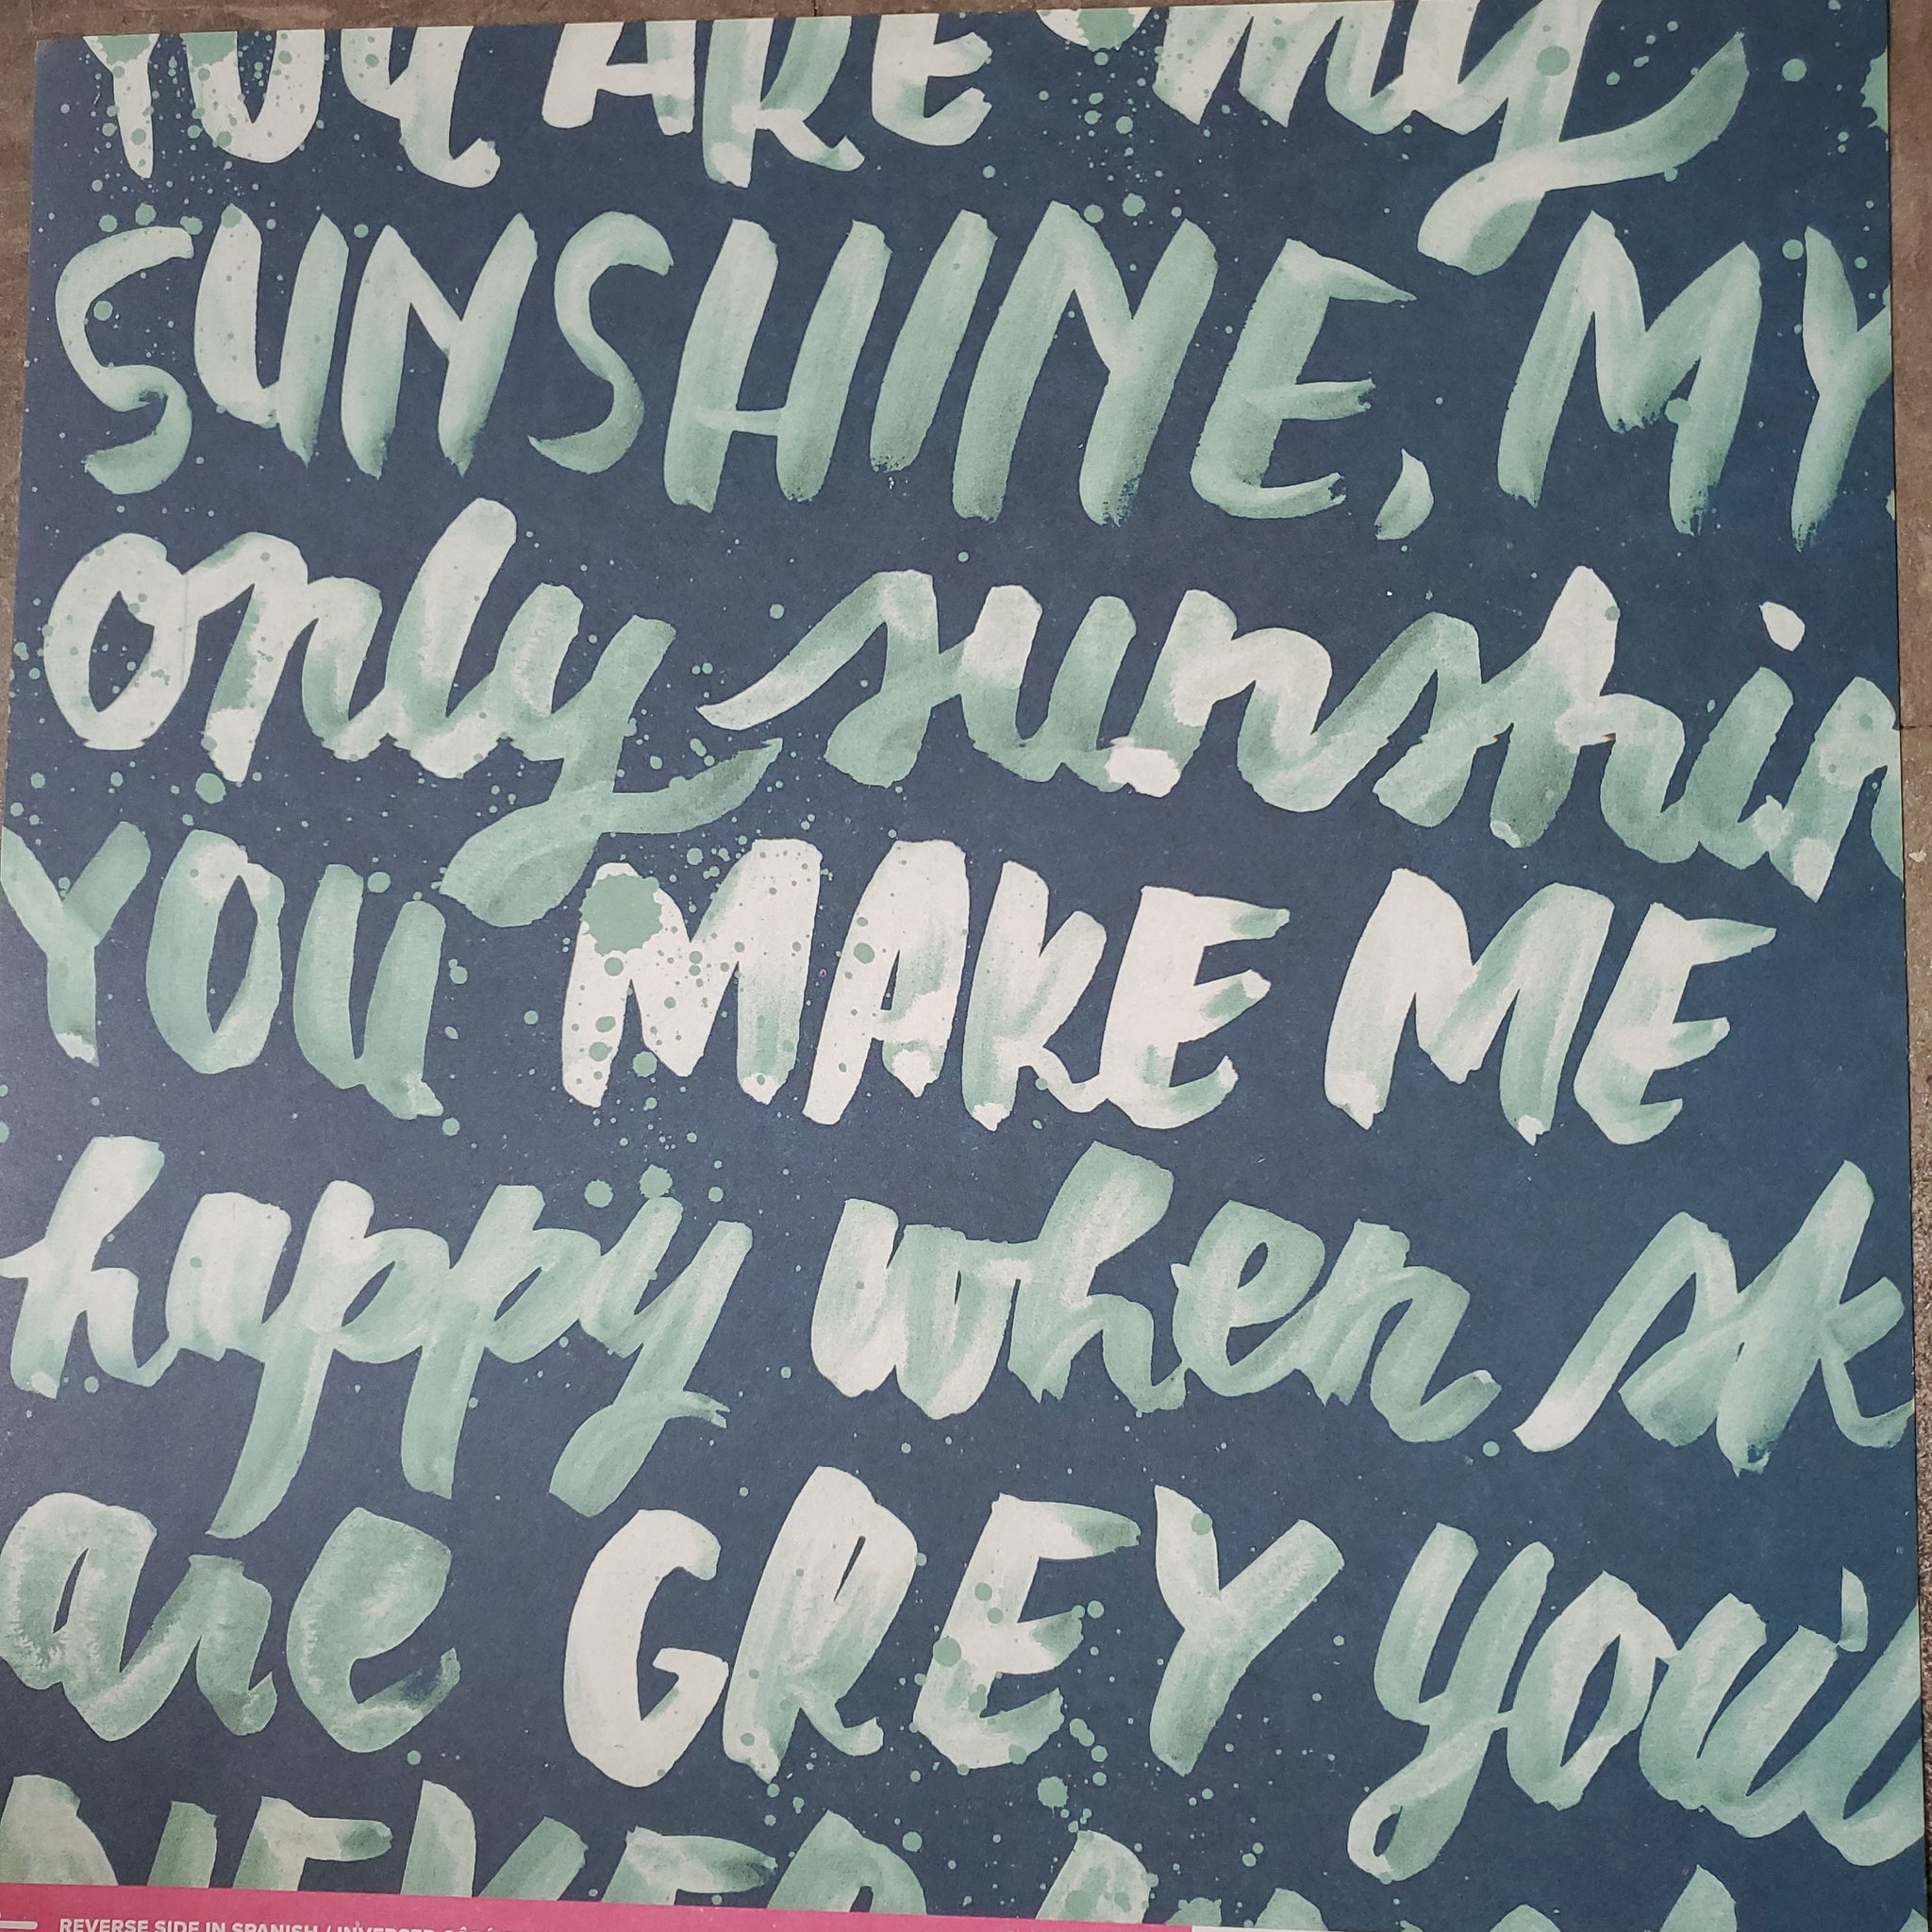 YOU ARE my
SUNSHINE, MY
only sunshin
YOU MAKE ME
happy when sk
are GREY you'll
NEVER
REVERSE SIDE IN SPANISH /